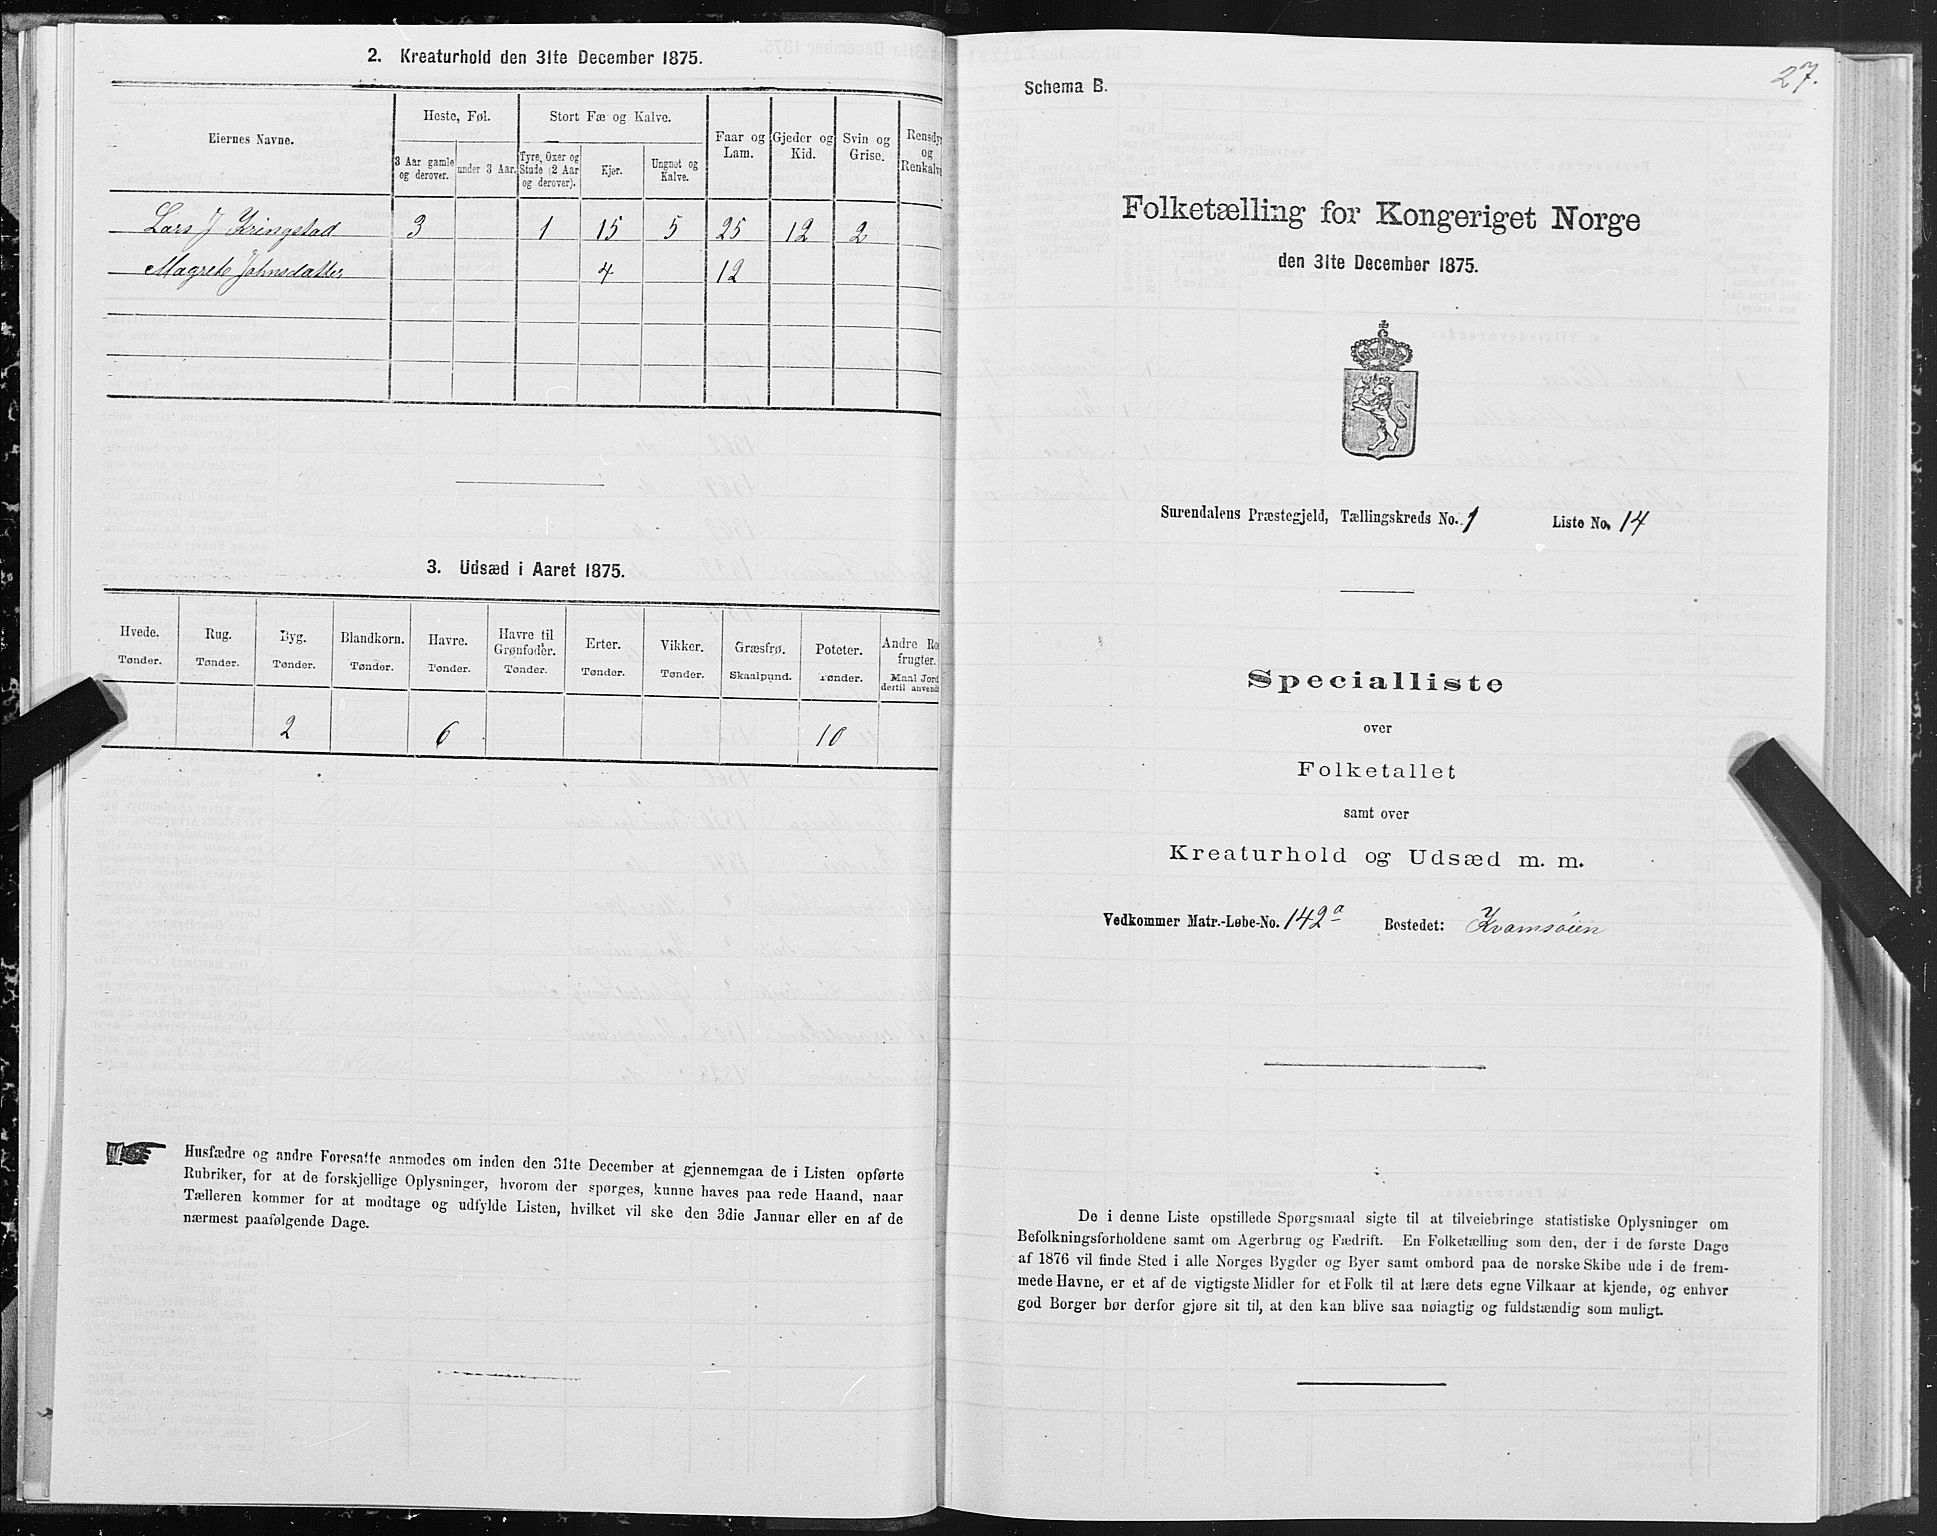 2. Kreaturhold den 31te December 1875.
Eiernes Navne.
Heste, Føl.
Stort Fæ og Kalve.
Faar og Lam.
Gjeder og Kid.
Svin og Grise.
Rensdy
og
Renkalve
3 Aar gamle og derover.
under 3 Aar.
Tyre, Oxer og Stude (2 Aar og derover).
Kjør.
Ungnøt og Kalve.
Lars J Kringstad 3 1 15 5 25 12 2
Magrete Johnsdatter 4 12
3. Udsæd i Aaret 1875.
Hvede. Rug. Byg. Blandkorn. Havre. Havre til Grønfoder. Erter. Vikker. Græsfrø. Poteter. Andre Ro
frugter.
Tønder. Tønder. Tønder. Tønder. Tønder. Tønder. Tønder. Tønder. Skaalpund. Tønder. Maal Jord
dertil anvend
2 6 10
Husfædre og andre Foresatte anmodes om inden den 31te December at gjennemgaa de i Listen opførte
Rubriker, for at de forskjellige Oplysninger, hvorom der spørges, kunne haves paa rede Haand, naar
Tælleren kommer for at modtage og udfylde Listen, hvilket vil ske den 3die Januar eller en af de
nærmest paafølgende Dage.
27.
Schema B.
Folketælling for Kongeriget Norge
den 31te December 1875.
Surendalens Præstegjeld, Tællingskreds No. 1 Liste No. 14
Specialliste
over
Folketallet
samt over
Kreaturhold og Udsæd m. m.
Vedkommer Matr.-Løbe-No. 142a Bostedet: Kvamsøien
De i denne Liste opstillede Spørgsmaal sigte til at tilveiebringe statistiske Oplysninger om
Befolkningsforholdene samt om Agerbrug og Fædrift. En Folketælling som den, der i de første Dage
af 1876 vil finde Sted i alle Norges Bygder og Byer samt ombord paa de norske Skibe ude i de frem-
mede Havne, er et af de vigtigste Midler for et Folk til at lære dets egne Vilkaar at kjende, og enhver
god Borger bør derfor gjøre sit til, at den kan blive saa nøiagtig og fuldstændig som muligt.